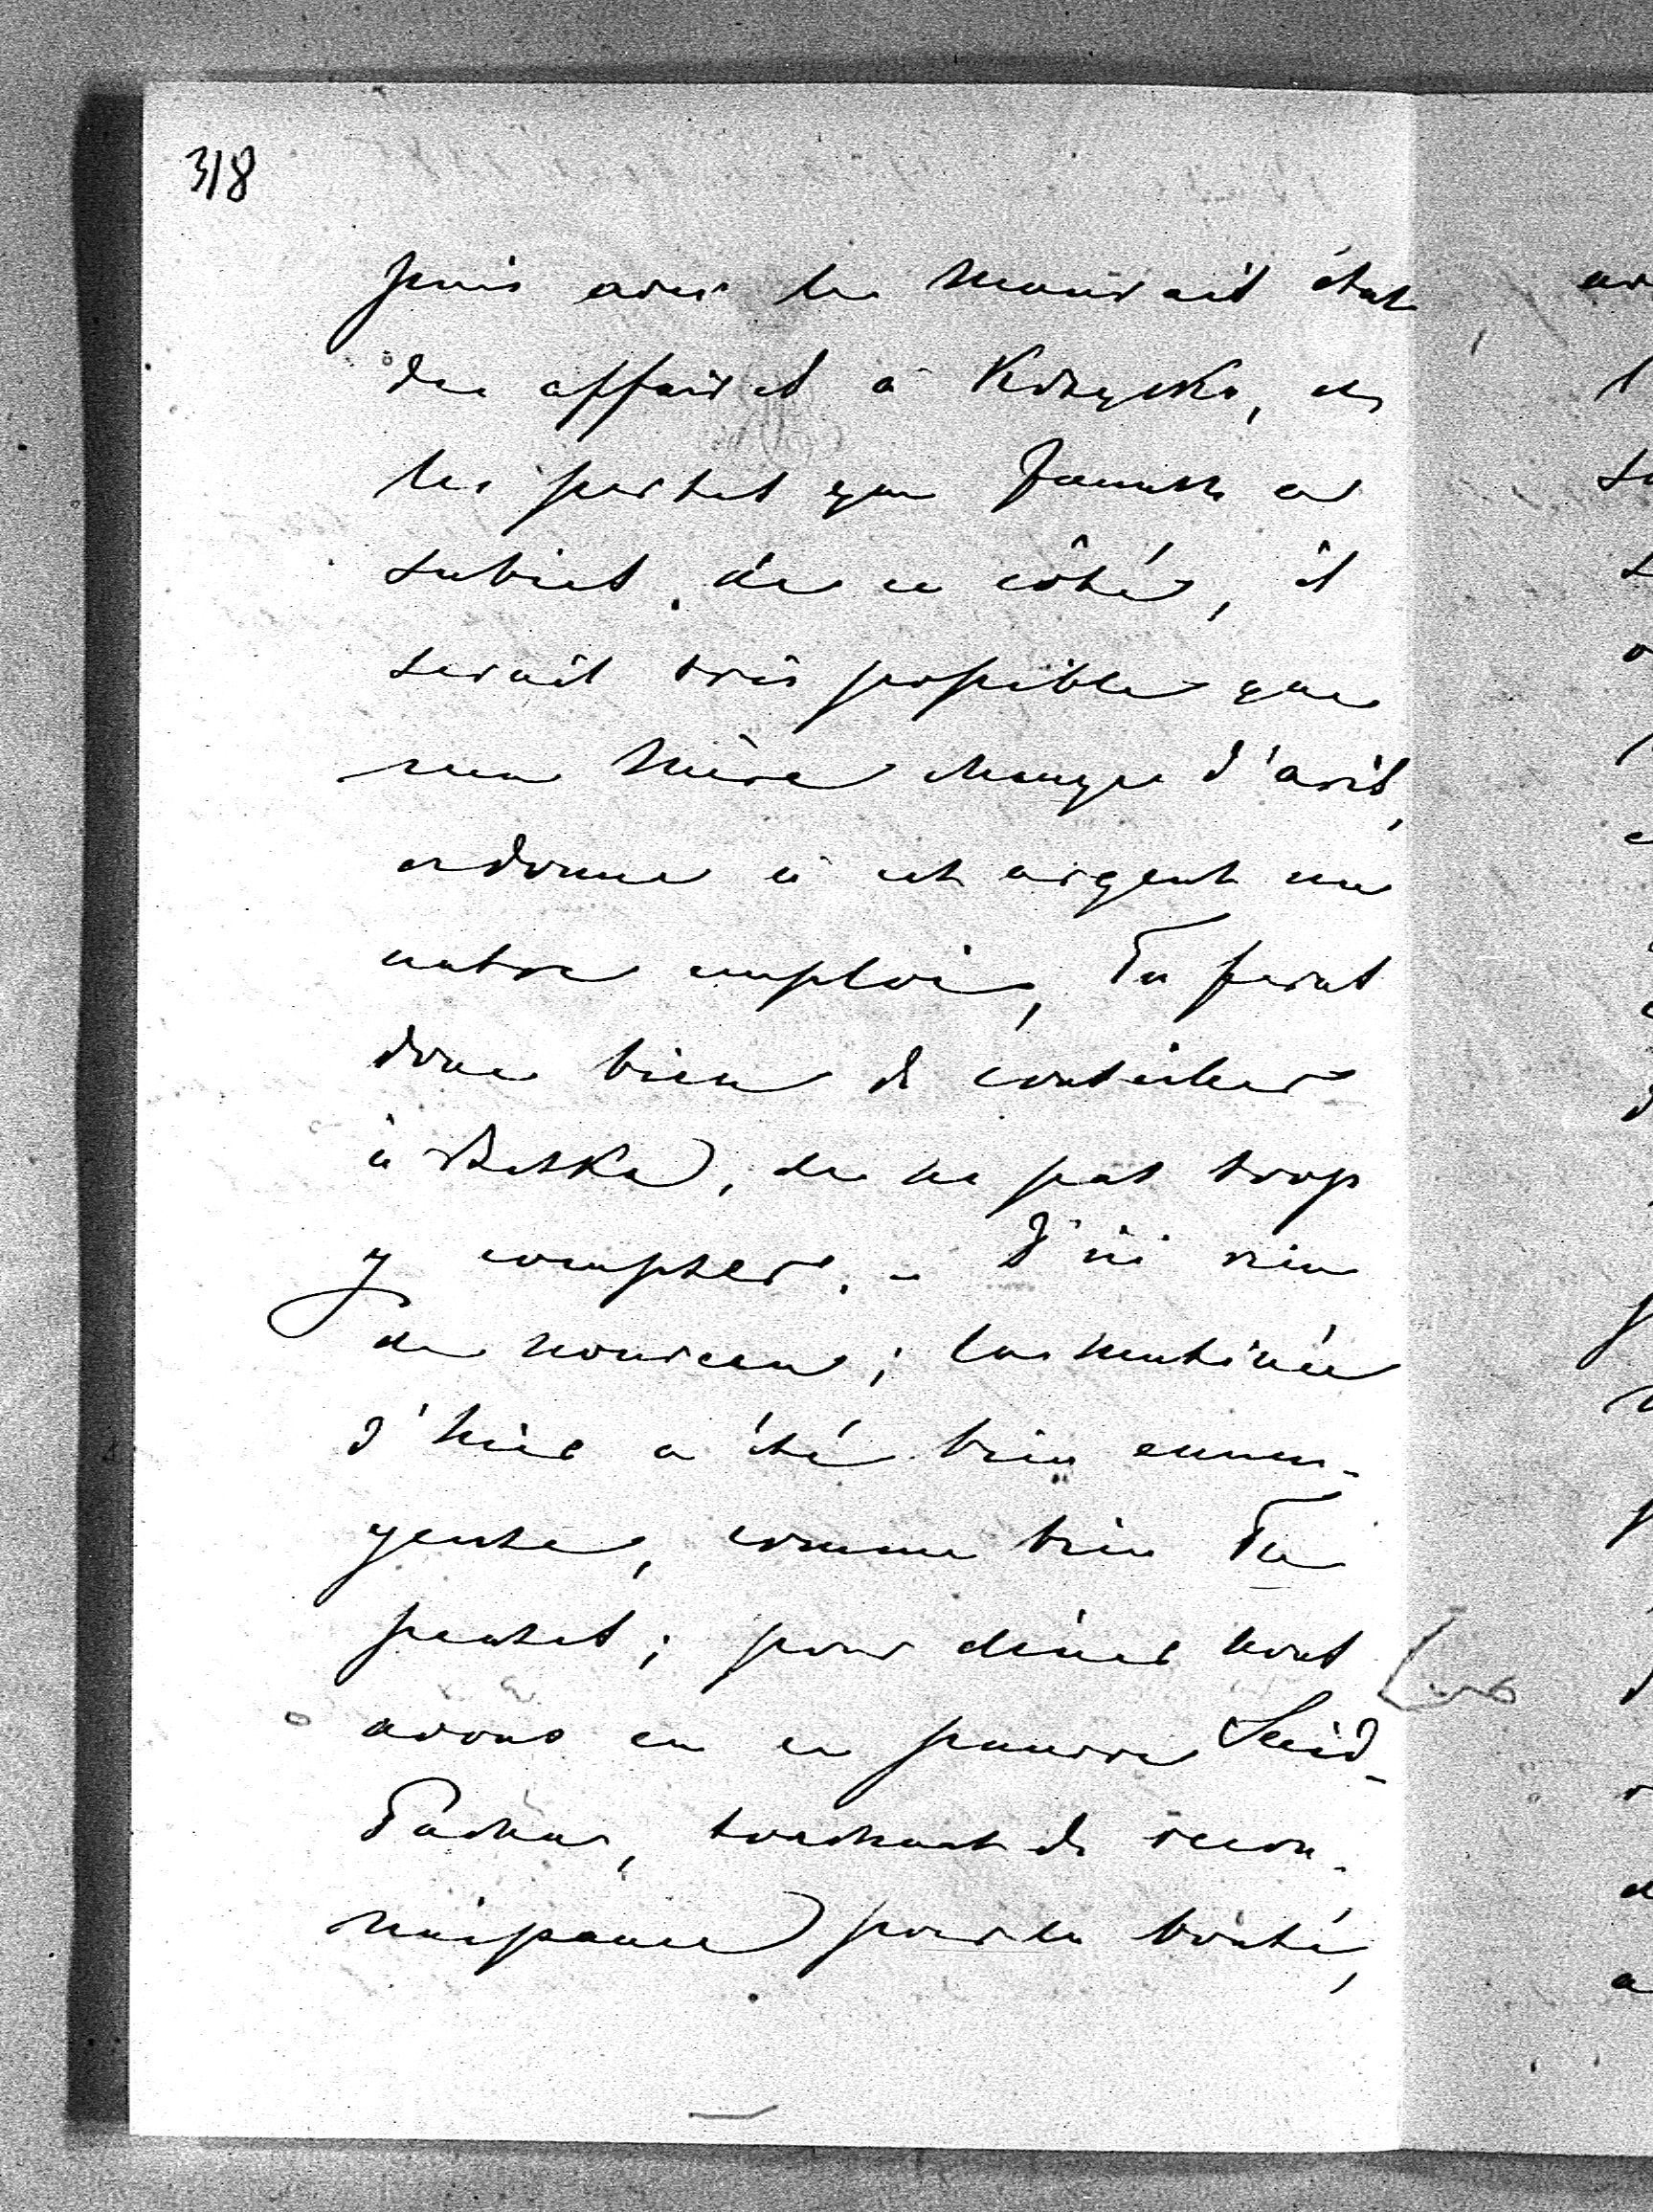 318
puis avec le mauvais état
des affaires à Krzysko, et
les pertes que Januch a
subies de ce côté, il
serait très possible que
ma Mère change d'avis,
et donne à cet argent un
autre emploi, Tu feras
donc bien de conseiller
à Betka, de ne pas trop
y compter. – J'ai rien
de nouveau; la matinée
d'hier a été bien ennu-
yeuse, comme bien Tu
penses; pour dîner nous
avons eu ce pauvre Seid-
Pacha, touchant de recon-
naissance pour la bonté,